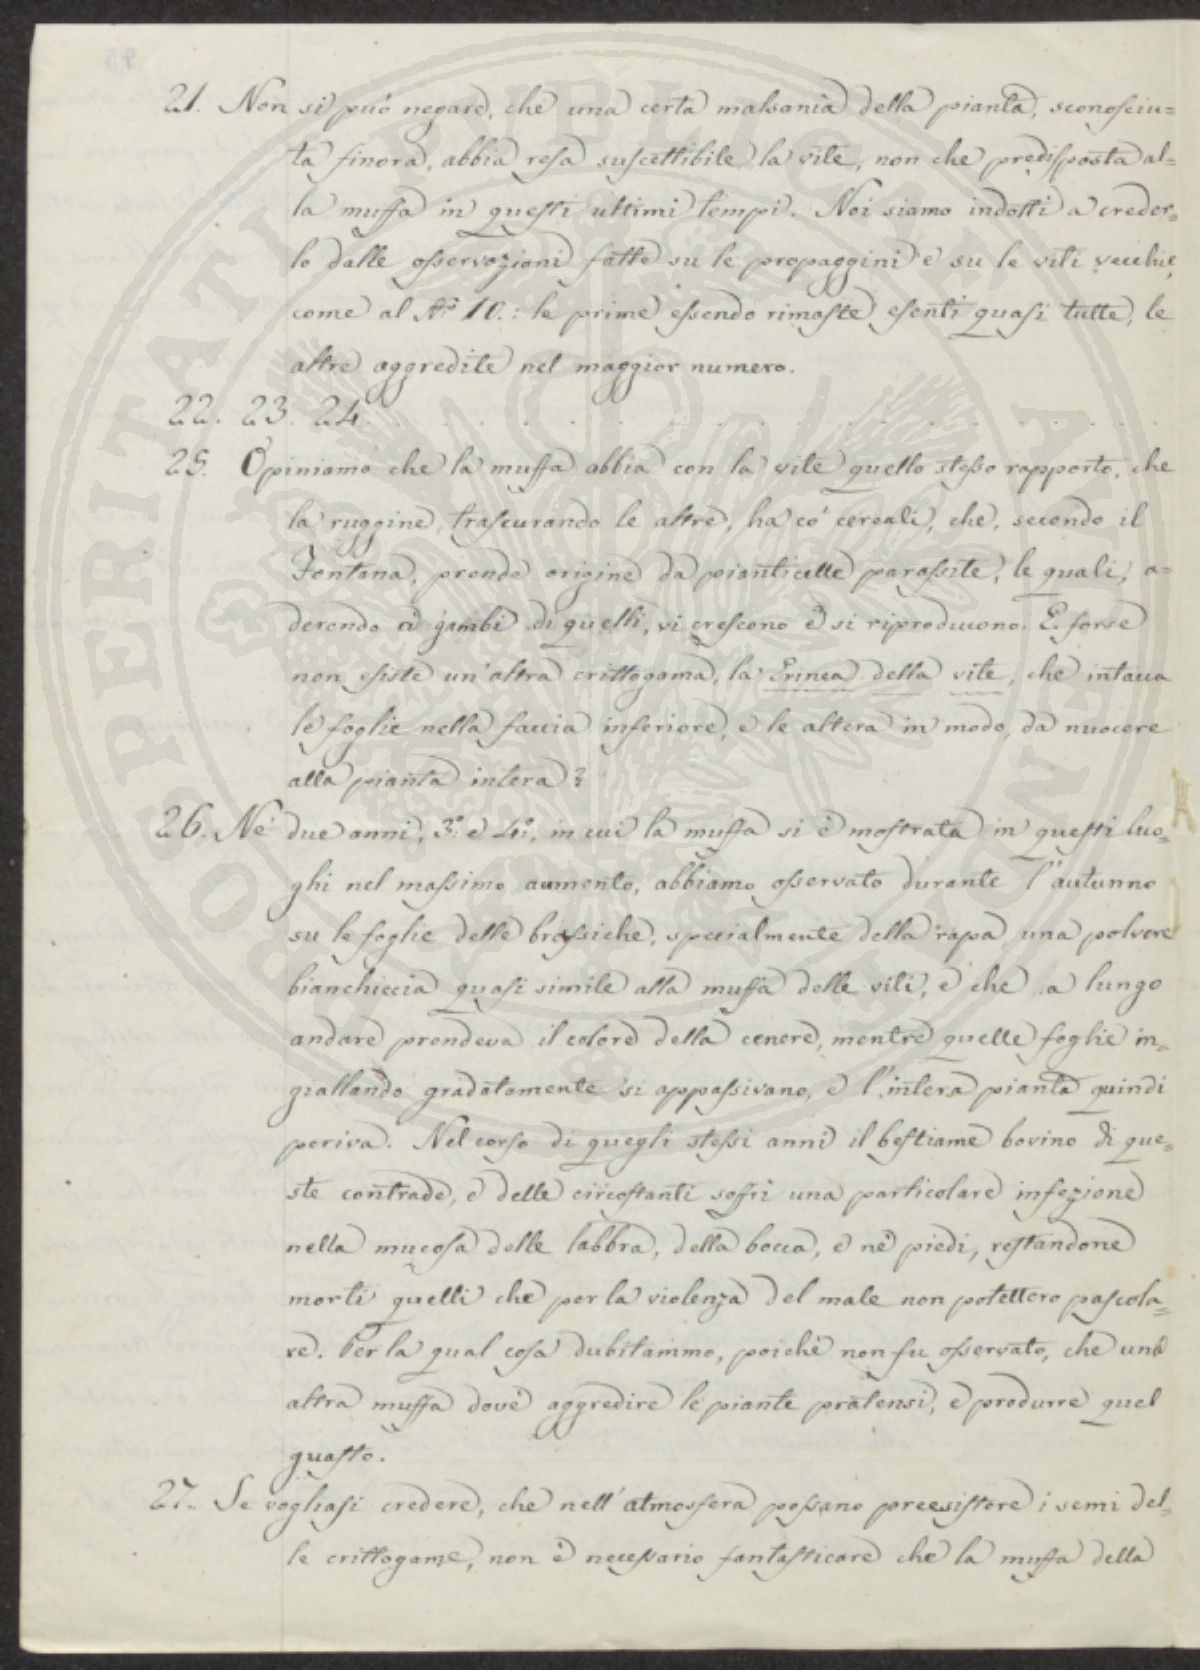 21. Non si può negare, che una certa malsania della pianta, sconosciu=
ta finora, abbia resa suscettibile la vite, non che predisposta al=
la muffa in questi ultimi tempi. Noi siamo indotti a creder=
lo dalle osservazioni fatte su le propaggini e su le viti vecchie,
come al N.° 10.: le prime essendo rimaste esenti quasi tutte, le
altre aggredite nel maggior numero.
22. 23. 24. . . . . . . . . . . . . . . . . .
25. Opiniamo che la muffa abbia con la vite quello stesso rapporto, che
la ruggine, trascurando le altre, ha co' cereali, che, secondo il
Fontana, prende origine da pianticelle parassite, le quali, a=
derendo ai gambi di quelli, vi crescono e si riproducono. E forse
non esiste un'altra crittogama, la Erinea della vite, che intacca
le foglie nella faccia inferiore, e le altera in modo, da nuocere
alla pianta intera?
26. Ne' due anni, 3.° e 4.°, in cui la muffa si è mostrata in questi luo=
ghi nel massimo aumento, abbiamo osservato durante l'autunno
su le foglie delle brassiche, specialmente della rapa, una polvere
bianchiccia quasi simile alla muffa delle viti, e che a lungo
andare prendeva il colore della cenere, mentre quelle foglie in=
giallando gradatamente si appassivano, e l'intera pianta quindi
periva. Nel corso di quegli stessi anni il bestiame bovino di que=
ste contrade, e delle circostanti soffrì una particolare infezione
nella mucosa delle labbra, della bocca, e ne' piedi, restandone
morti quelli che per la violenza del male non potettero pascola=
re. Per la qual cosa dubitammo, poichè non fu osservato, che una
altra muffa dovè aggredire le piante pratensi, e produrre quel
guasto.
27. Se vogliasi credere, che nell'atmosfera possano preesistere i semi del=
le crittogame, non è necessario fantasticare che la muffa della
PROSPERITATI PUBLICAE AUGENDAE